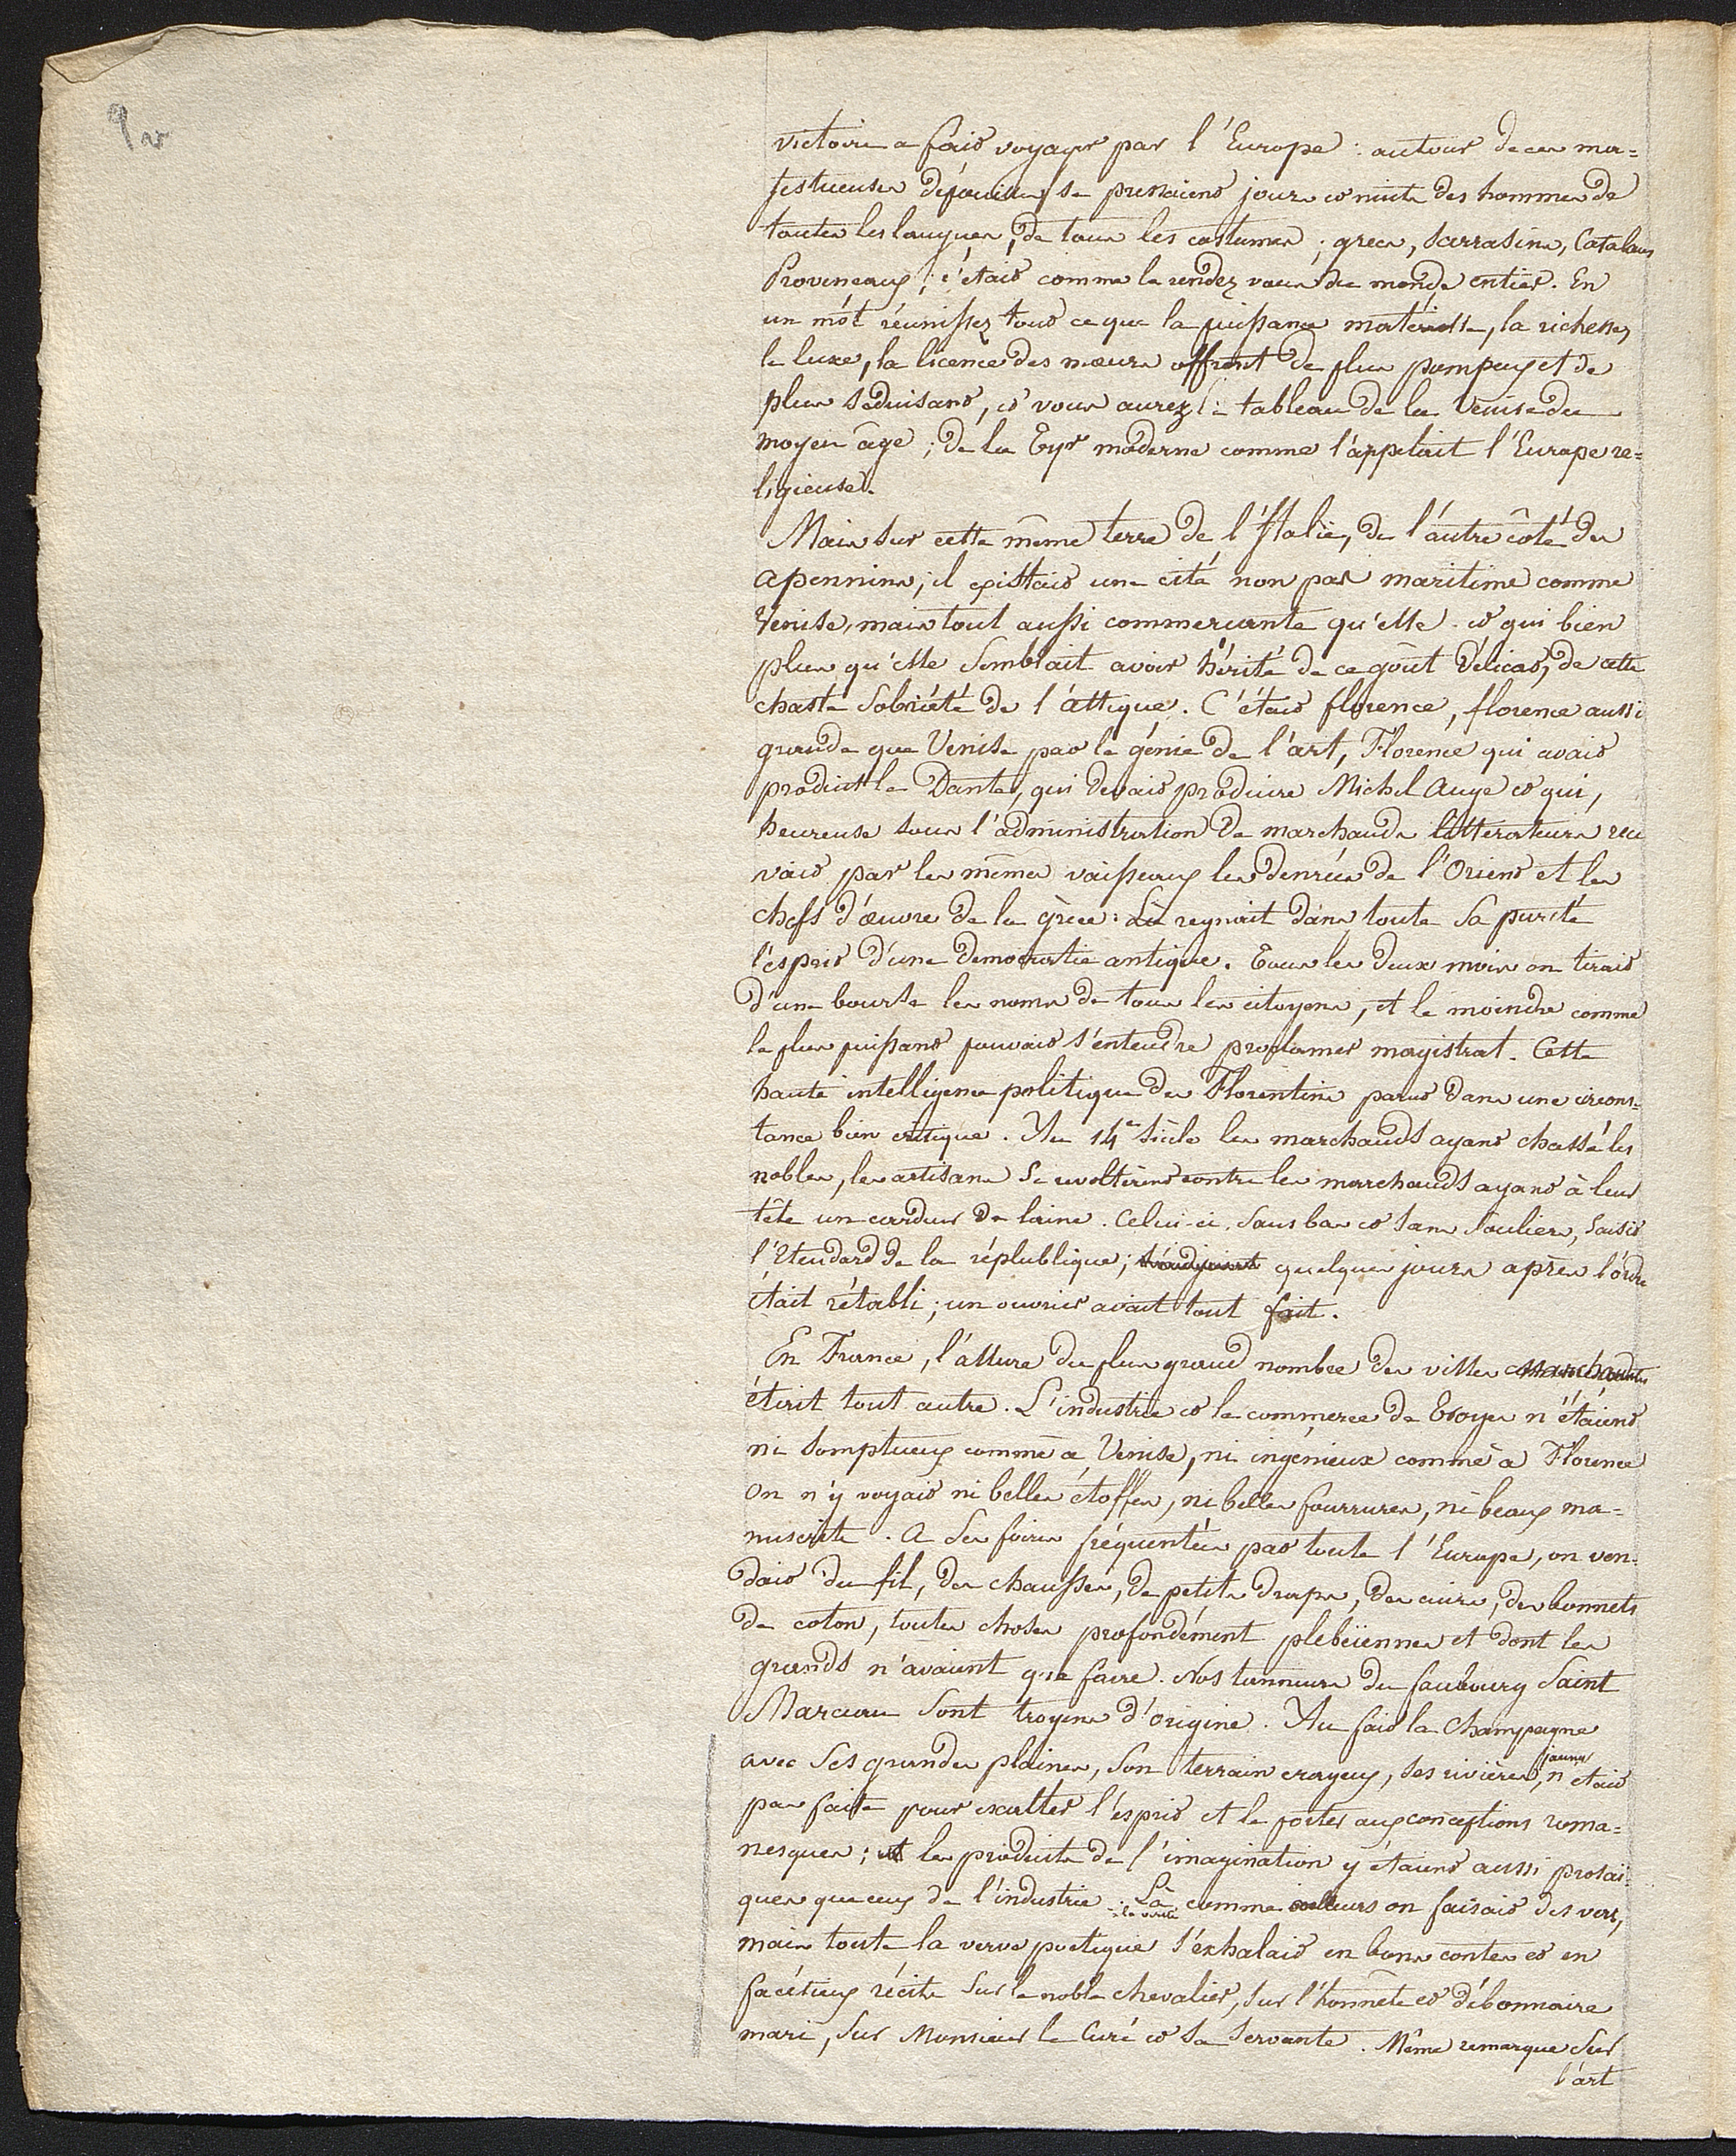 9 v
victoire a fait voyager par l'Europe : autour de ces ma=
jestueuses dépouilles se pressaient jour et nuit des hommes de
toutes les langues, de tous les costumes ; grecs, sarrasins, Catalans
Provençaux ; c'était comme le rendez vous du monde entier. En
un mot réunissez tout ce que la puissance matérielle, la richesse,
le luxe, la licence des mœurs offrent de plus pompeux et de
plus séduisant, et vous aurez le tableau de la Venise du
moyen âge ; de la Tyr moderne comme l'appelait l'Europe re=
ligieuse.
Mais sur cette même terre de l'Italie, de l'autre côté des
apennins, il existait une cité non pas maritime comme
Venise, mais tout aussi commerçante qu'elle et qui bien
plus qu'elle semblait avoir hérité de ce goût délicat, de cette
chaste sobriété de l'attique. C'était florence, florence aussi
grande que Venise par le génie de l'art, Florence qui avait
produit le Dante, qui devait produire Michel Ange et qui,
heureuse sous l'administration de marchands littérateurs rece
vait par les mêmes vaisseaux les denrées de l'Orient et les
chefs d'œuvre de la grèce : Là regnait dans toute sa pureté
l'esprit d'une democratie antique. Tous les deux mois on tirait
d'une bourse les noms de tous les citoyens, et le moindre comme
le plus puissant pouvait s'entendre proclamer magistrat. Cette
haute intelligence politique des Florentins parut dans une circons=
tance bien critique. Au 14e siècle les marchands ayant chassé les
nobles, les artisans se revoltèrent contre les marchands ayant à leur
tête un cardeur de laine. Celui-ci, sans bas et sans souliers, saisit
l'étendard de la républlique ; quelques jours après l'ordre
était rétabli ; un ouvrier avait tout fait.
En France, l'allure du plus grand nombre des villes marchandes
était tout autre. L'industrie et le commerce de Troyes n'étaient
ni somptueux comme à Venise, ni ingénieux comme à Florence
on n'y voyait ni belles étoffes, ni belles fourrures, ni beaux ma=
nuscrits. A ses foires fréquentées par toute l'Europe, on ven=
dait du fil, des chausses, de petits draps, des cuirs, des bonnets
de coton, toutes choses profondément plebéiennes et dont les
grands n'avaient que faire. Nos tanneurs du faubourg Saint
Marceau sont troyens d'origine. Au fait la Champagne
avec ses grandes plaines, son terrain crayeux, ses rivières jaunes n'était
pas faite pour exalter l'esprit et le porter aux conceptions roma=
nesques ; et les produits de l'imagination y étaient aussi prosaï=
ques que ceux de l'industrie. Là à la vérité comme ailleurs on faisait des vers,
mais toute la verve poetique s'exhalait en bons contes et en
facétieux récits sur le noble chevalier, sur l'honnête et débonnaire
mari, sur Monsieur le Curé et sa servante. Même remarque sur
l'art